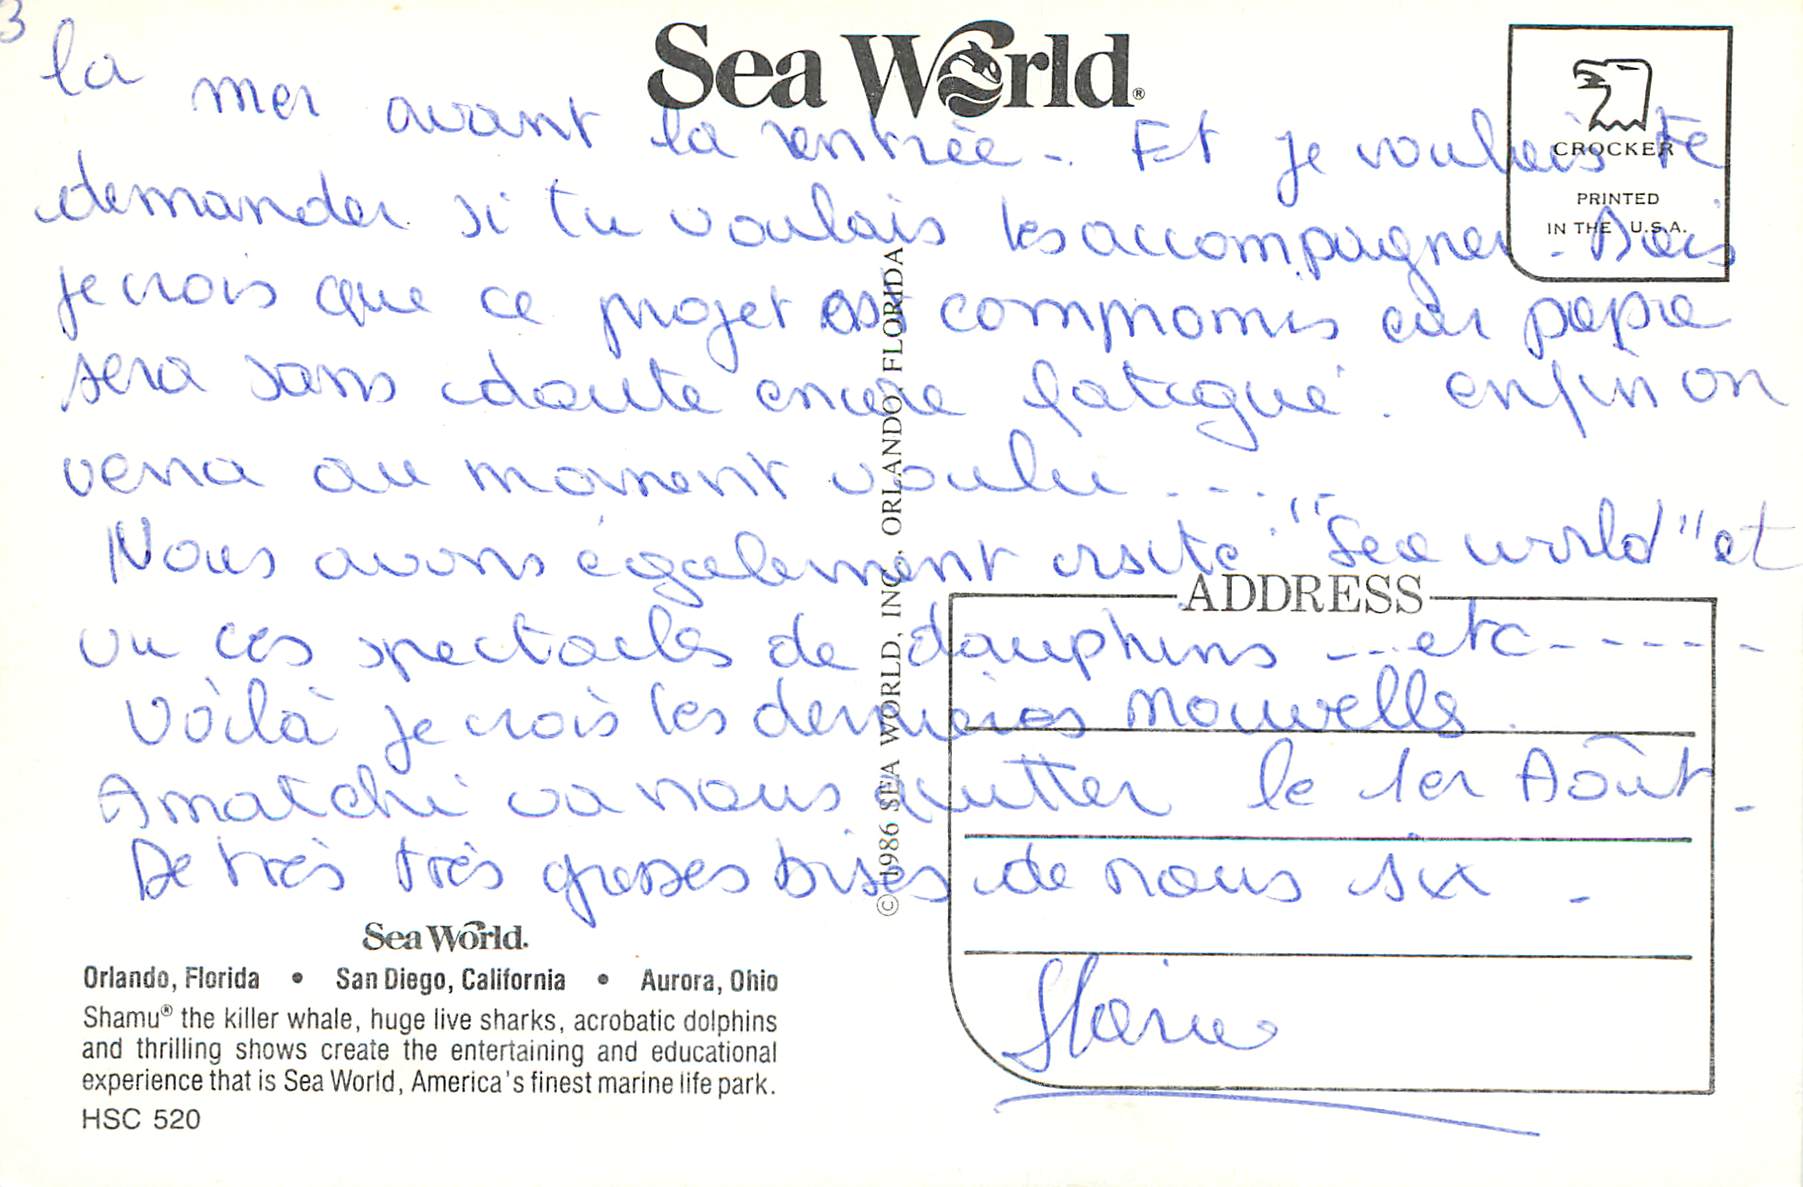 3
Sea World®
la mer avant la rentrée -. Et je voulais te
demander si tu voulais les accompagner. Mais
je crois que ce projet est compromis car papa
sera sans doute encore fatigué. enfin on
verra au moment voulu .....
Nous avons également visité "Sea world" et
vu ces spectacles de dauphins ... etc ------
Voilà je crois les dernières nouvelles.
Amatchi va nous quitter le 1er Aôut.
De très très grosses bises de nous six.
CROCKER
PRINTED
IN THE U.S.A.
© 1986 SEA WORLD, INC. ORLANDO, FLORIDA
ADDRESS
Sea World.
Orlando, Florida • San Diego, California • Aurora, Ohio
Shamu® the killer whale, huge live sharks, acrobatic dolphins
and thrilling shows create the entertaining and educational
experience that is Sea World, America's finest marine life park.
HSC 520